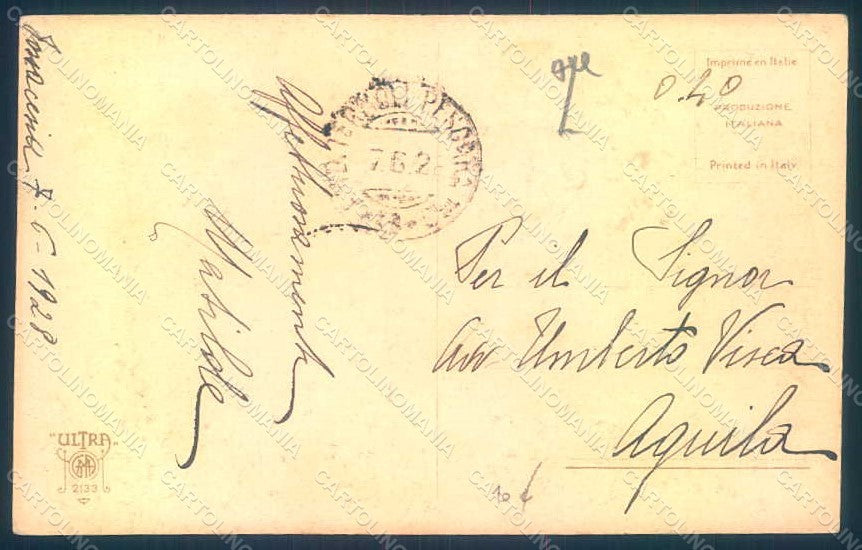 7-6-1928
Affettuosamente
Matilde
7.6.2
Imprimé en Italie
0.40
PRODUZIONE
ITALIANA
Printed in Italy
Per il Signor
Avv Umberto Visca
Aquila
"ULTRA"
2133
10
CARTOLINOMANIA